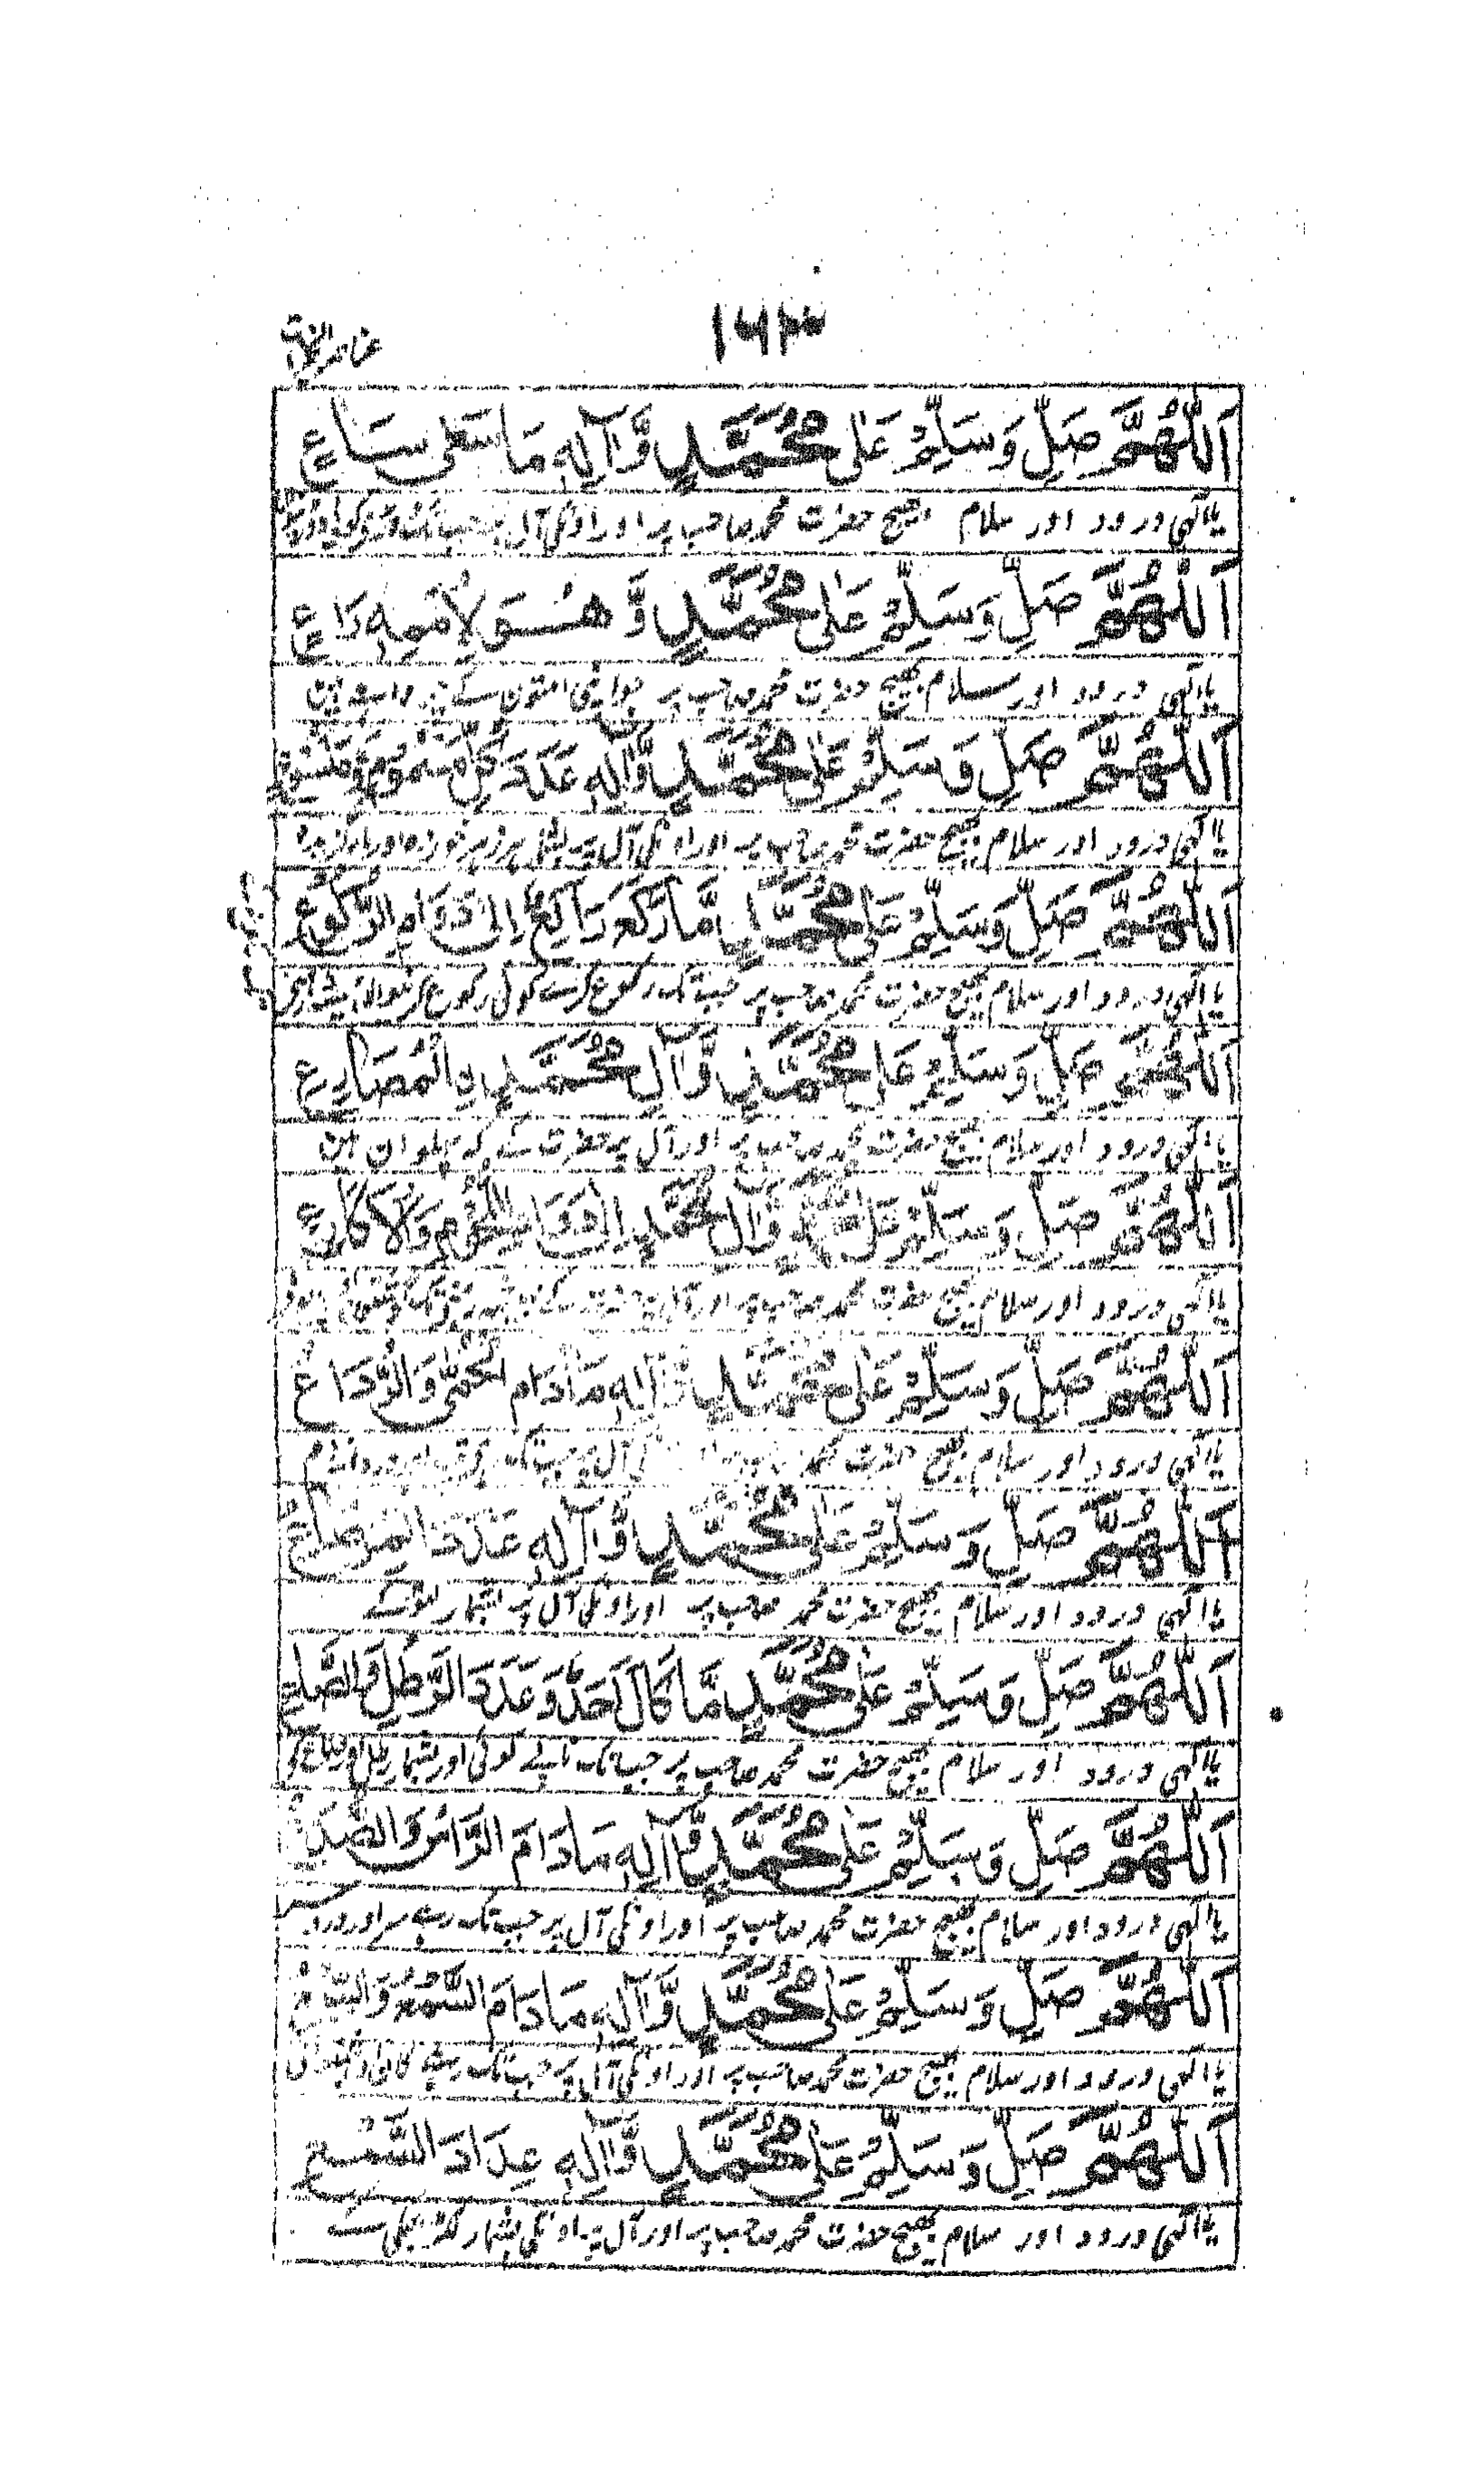 ۱۶۳
اَللّٰهُمَّ صَلِّ وَسَلِّمْ عَلٰی مُحَمَّدٍ وَّاٰلِهٖ مَا سَعٰی سَاعٍ
یا الٰہی درود اور سلام بھیج حضرت محمد صاحب پر اور اونکی آل پر
اَللّٰهُمَّ صَلِّ وَسَلِّمْ عَلٰی مُحَمَّدٍ وَّهُوَ لِاُمَمِهٖ دَاعٍ
یا الٰہی درود اور سلام بھیج حضرت محمد صاحب پر جو اپنی امتون کے
اَللّٰهُمَّ صَلِّ وَسَلِّمْ عَلٰی مُحَمَّدٍ وَّاٰلِهٖ عَدَدَ كُلِّ مَسْمُوْمٍ
یا الٰہی درود اور سلام بھیج حضرت محمد صاحب پر اور اونکی آل پر بشمار ہر زہر خوردہ اور
اَللّٰهُمَّ صَلِّ وَسَلِّمْ عَلٰی مُحَمَّدٍ مَّا رَكَعَ رَاكِعٌ اِلٰی دَوَامِ الرُّكُوْعِ
یا الٰہی درود اور سلام بھیج حضرت محمد صاحب پر جب تک رکوع کرے کوئی رکوع کرنیوالا
اَللّٰهُمَّ صَلِّ وَسَلِّمْ عَلٰی مُحَمَّدٍ وَّاٰلِ مُحَمَّدٍ الْمُصَارِعِ
یا الٰہی درود اور سلام بھیج حضرت محمد صاحب پر اور آل پر حضرت کے کہ پہلوان ہین
اَللّٰهُمَّ صَلِّ وَسَلِّمْ عَلٰی مُحَمَّدٍ وَّاٰلِ مُحَمَّدٍ وَالْاَكَارِعِ
یا الٰہی درود اور سلام بھیج حضرت محمد صاحب پر اور آل پر حضرت کے
اَللّٰهُمَّ صَلِّ وَسَلِّمْ عَلٰی مُحَمَّدٍ وَّاٰلِهٖ مَا دَامَ الْحُمّٰی وَالرُّدَاعُ
یا الٰہی درود اور سلام بھیج حضرت محمد آل پر جب تک
اَللّٰهُمَّ صَلِّ وَسَلِّمْ عَلٰی مُحَمَّدٍ وَّاٰلِهٖ عَدَدَ
یا الٰہی درود اور سلام بھیج حضرت محمد صاحب پر اور اونکی آل پر بشمار
اَللّٰهُمَّ صَلِّ وَسَلِّمْ عَلٰی مُحَمَّدٍ مَّا كَالَ اَحَدٌ وَعَدَدَ الرَّطْلِ وَالصَّاعِ
یا الٰہی درود اور سلام بھیج حضرت محمد صاحب پر جب تک ناپے کوئی اور بشمار رطل اور صاع کو
اَللّٰهُمَّ صَلِّ وَسَلِّمْ عَلٰی مُحَمَّدٍ وَّاٰلِهٖ مَا دَامَ الرَّأْسُ وَالصُّدَاعُ
یا الٰہی درود اور سلام بھیج حضرت محمد صاحب پر اور اونکی آل پر جب تک رہے سر اور درد سر
اَللّٰهُمَّ صَلِّ وَسَلِّمْ عَلٰی مُحَمَّدٍ وَّاٰلِهٖ مَا دَامَ السَّمْعُ
یا الٰہی درود اور سلام بھیج حضرت محمد صاحب پر اور اونکی آل پر جب تک رہے
اَللّٰهُمَّ صَلِّ وَسَلِّمْ عَلٰی مُحَمَّدٍ وَّاٰلِهٖ عِدَادَ
یا الٰہی درود اور سلام بھیج حضرت محمد صاحب پر اور آل پر اونکی بشمار